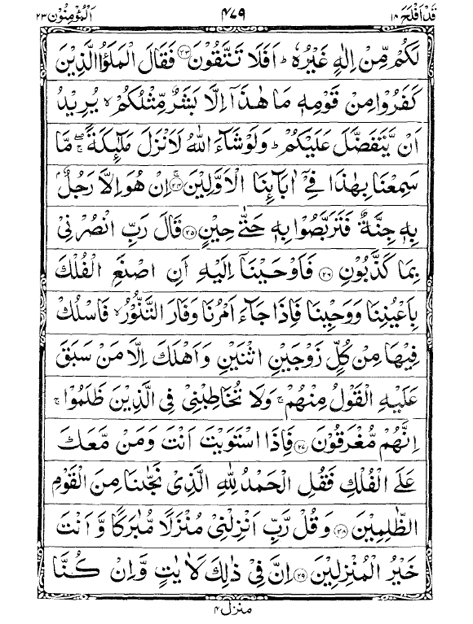 قد افلح ۱۸ ۴۷۹ المؤمنون ۲۳
لَكُمْ مِّنْ اِلٰهٍ غَيْرُهٗ ؕ اَفَلَا تَتَّقُوْنَ ﴿۲۳﴾ فَقَالَ الْمَلَؤُا الَّذِيْنَ
كَفَرُوْا مِنْ قَوْمِهٖ مَا هٰذَاۤ اِلَّا بَشَرٌ مِّثْلُكُمْ ۙ يُرِيْدُ
اَنْ يَّتَفَضَّلَ عَلَيْكُمْ ؕ وَلَوْ شَآءَ اللّٰهُ لَاَنْزَلَ مَلٰٓئِكَةً ۖۚ مَّا
سَمِعْنَا بِهٰذَا فِيْۤ اٰبَآئِنَا الْاَوَّلِيْنَ ﴿۲۴﴾ اِنْ هُوَ اِلَّا رَجُلٌۢ
بِهٖ جِنَّةٌ فَتَرَبَّصُوْا بِهٖ حَتّٰى حِيْنٍ ﴿۲۵﴾ قَالَ رَبِّ انْصُرْنِيْ
بِمَا كَذَّبُوْنِ ﴿۲۶﴾ فَاَوْحَيْنَاۤ اِلَيْهِ اَنِ اصْنَعِ الْفُلْكَ
بِاَعْيُنِنَا وَوَحْيِنَا فَاِذَا جَآءَ اَمْرُنَا وَفَارَ التَّنُّوْرُ ۙ فَاسْلُكْ
فِيْهَا مِنْ كُلٍّ زَوْجَيْنِ اثْنَيْنِ وَاَهْلَكَ اِلَّا مَنْ سَبَقَ
عَلَيْهِ الْقَوْلُ مِنْهُمْ ۚ وَلَا تُخَاطِبْنِيْ فِي الَّذِيْنَ ظَلَمُوْا ۚ
اِنَّهُمْ مُّغْرَقُوْنَ ﴿۲۷﴾ فَاِذَا اسْتَوَيْتَ اَنْتَ وَمَنْ مَّعَكَ
عَلَى الْفُلْكِ فَقُلِ الْحَمْدُ لِلّٰهِ الَّذِيْ نَجّٰىنَا مِنَ الْقَوْمِ
الظّٰلِمِيْنَ ﴿۲۸﴾ وَقُلْ رَّبِّ اَنْزِلْنِيْ مُنْزَلًا مُّبٰرَكًا وَّاَنْتَ
خَيْرُ الْمُنْزِلِيْنَ ﴿۲۹﴾ اِنَّ فِيْ ذٰلِكَ لَاٰيٰتٍ وَّاِنْ كُنَّا
منزل ۴